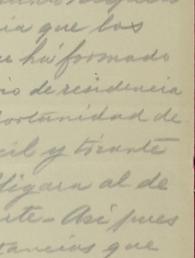 ia que los
ha formado
io de residencia
portunidad de
cil y tirante
ligara al de
rte - Asi pues
tancias que